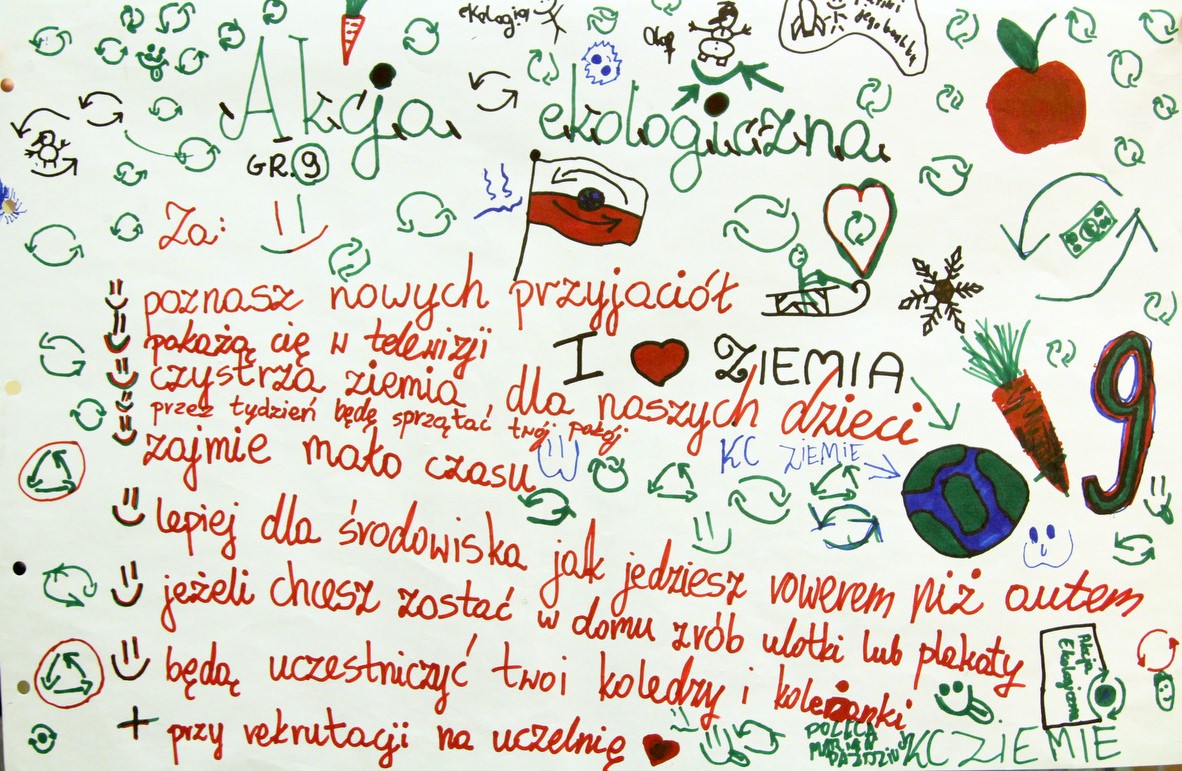 ekologia
Akcja ekologiczna
GR. 9
Za:
poznasz nowych przyjaciół
pokażą cię w telewizji
I ZIEMIA
czystrza ziemia dla naszych dzieci
przez tydzień będę sprzątać twój pokój
zajmie mało czasu
KC ZIEMIE
9
lepiej dla środowiska jak jedziesz rowerem niż autem
jeżeli chcesz zostać w domu zrób ulotki lub plakaty
będą uczestniczyć twoi koledzy i koleżanki
Akcja
Ekologiczna
+ przy rekrutacji na uczelnię
POLECA
KC ZIEMIE